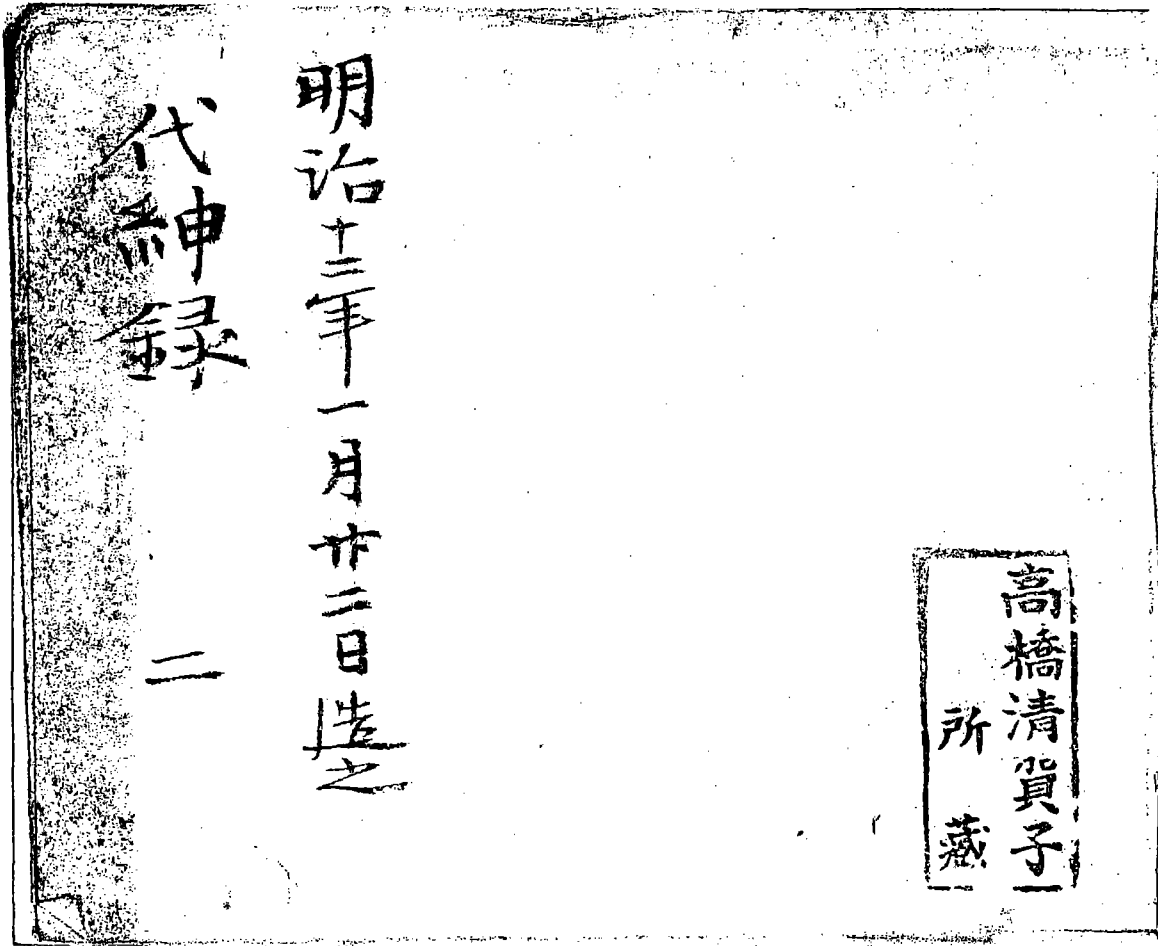 高橋清賀子
所藏
明治十二年一月廿二日造之
代紳録 二